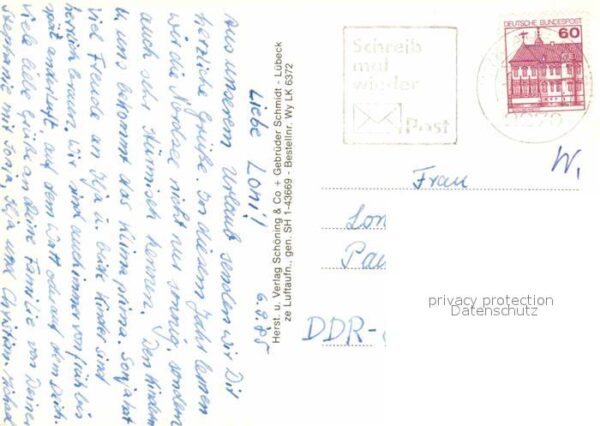 6.8.85
Liebe Loni!
Aus unserem Urlaub senden wir Dir
herzliche Grüße. In diesem Jahr lernen
wir die Nordsee nicht nur sonnig, sondern
auch sehr stürmisch kennen. Den Kindern
u. uns bekommt das Klima prima. Sonja hat
viel Freude an Ilja u. beide Kinder sind
herrlich braun. Wir sind auch immer von früh bis
spät auf dem Watt oder auf dem Deich.
Viele liebe Grüße an Deine Familie von Deiner
Stephanie mit Sonja, Ilja und
Herst. u. Verlag Schöning & Co + Gebrüder Schmidt - Lübeck
ze Luftaufn., gen. SH 1-43669 - Bestellnr. Wy LK 6372
Schreib
mal
wieder
Post
DEUTSCHE BUNDESPOST
60
W.
Frau
Lon
Pau
DDR-
privacy protection
Datenschutz